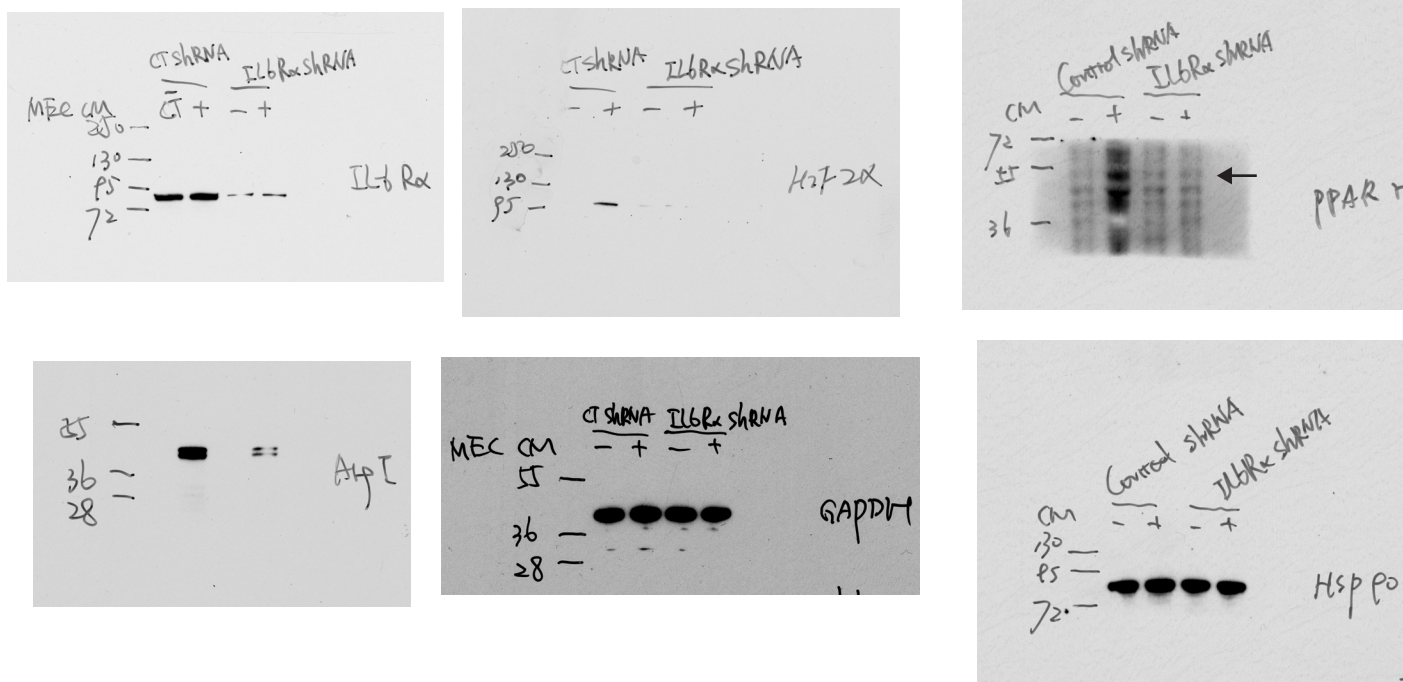 CT shRNA
IL6Rα shRNA
MEC CM CT + - +
250
130
95
72
IL6 Rα
CT shRNA IL6Rα shRNA
- + - +
250
130
95
HIF 2α
Control shRNA
IL6Rα shRNA
CM - + - +
72
55
36
PPAR r
55
36
28
Arg I
CT shRNA IL6Rα shRNA
MEC CM - + - +
55
36
28
GAPDH
Control shRNA
IL6Rα shRNA
CM - + - +
130
95
72
Hsp 90